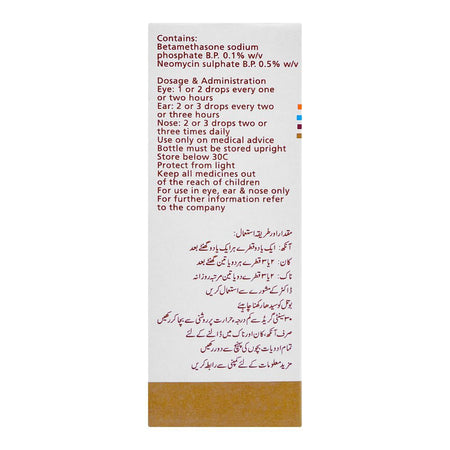 Contains:
Betamethasone sodium
phosphate B.P. 0.1% w/v
Neomycin sulphate B.P. 0.5% w/v
Dosage & Administration
Eye: 1 or 2 drops every one
or two hours
Ear: 2 or 3 drops every two
or three hours
Nose: 2 or 3 drops two or
three times daily
Use only on medical advice
Bottle must be stored upright
Store below 30C
Protect from light
Keep all medicines out
of the reach of children
For use in eye, ear & nose only
For further information refer
to the company
مقدار اور طریقہ استعمال:
آنکھ: ایک یا دو قطرے ہر ایک یا دو گھنٹے بعد
کان: ۲ یا ۳ قطرے ہر دو یا تین گھنٹے بعد
ناک: ۲ یا ۳ قطرے دو یا تین مرتبہ روزانہ
ڈاکٹر کے مشورے سے استعمال کریں
بوتل کو سیدھا رکھنا چاہیئے
۳۰ سینٹی گریڈ سے کم درجہ حرارت پر روشنی سے بچا کر رکھیں
صرف آنکھ، کان اور ناک میں ڈالنے کے لئے
تمام ادویات بچوں کی پہنچ سے دور رکھیں
مزید معلومات کے لئے کمپنی سے رابطہ کریں